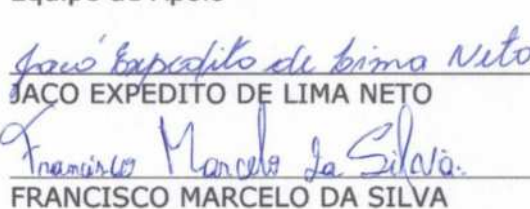 Equipe de Apoio
Jacó Expedito de Lima Neto
JACO EXPEDITO DE LIMA NETO
Francisco Marcelo da Silva.
FRANCISCO MARCELO DA SILVA